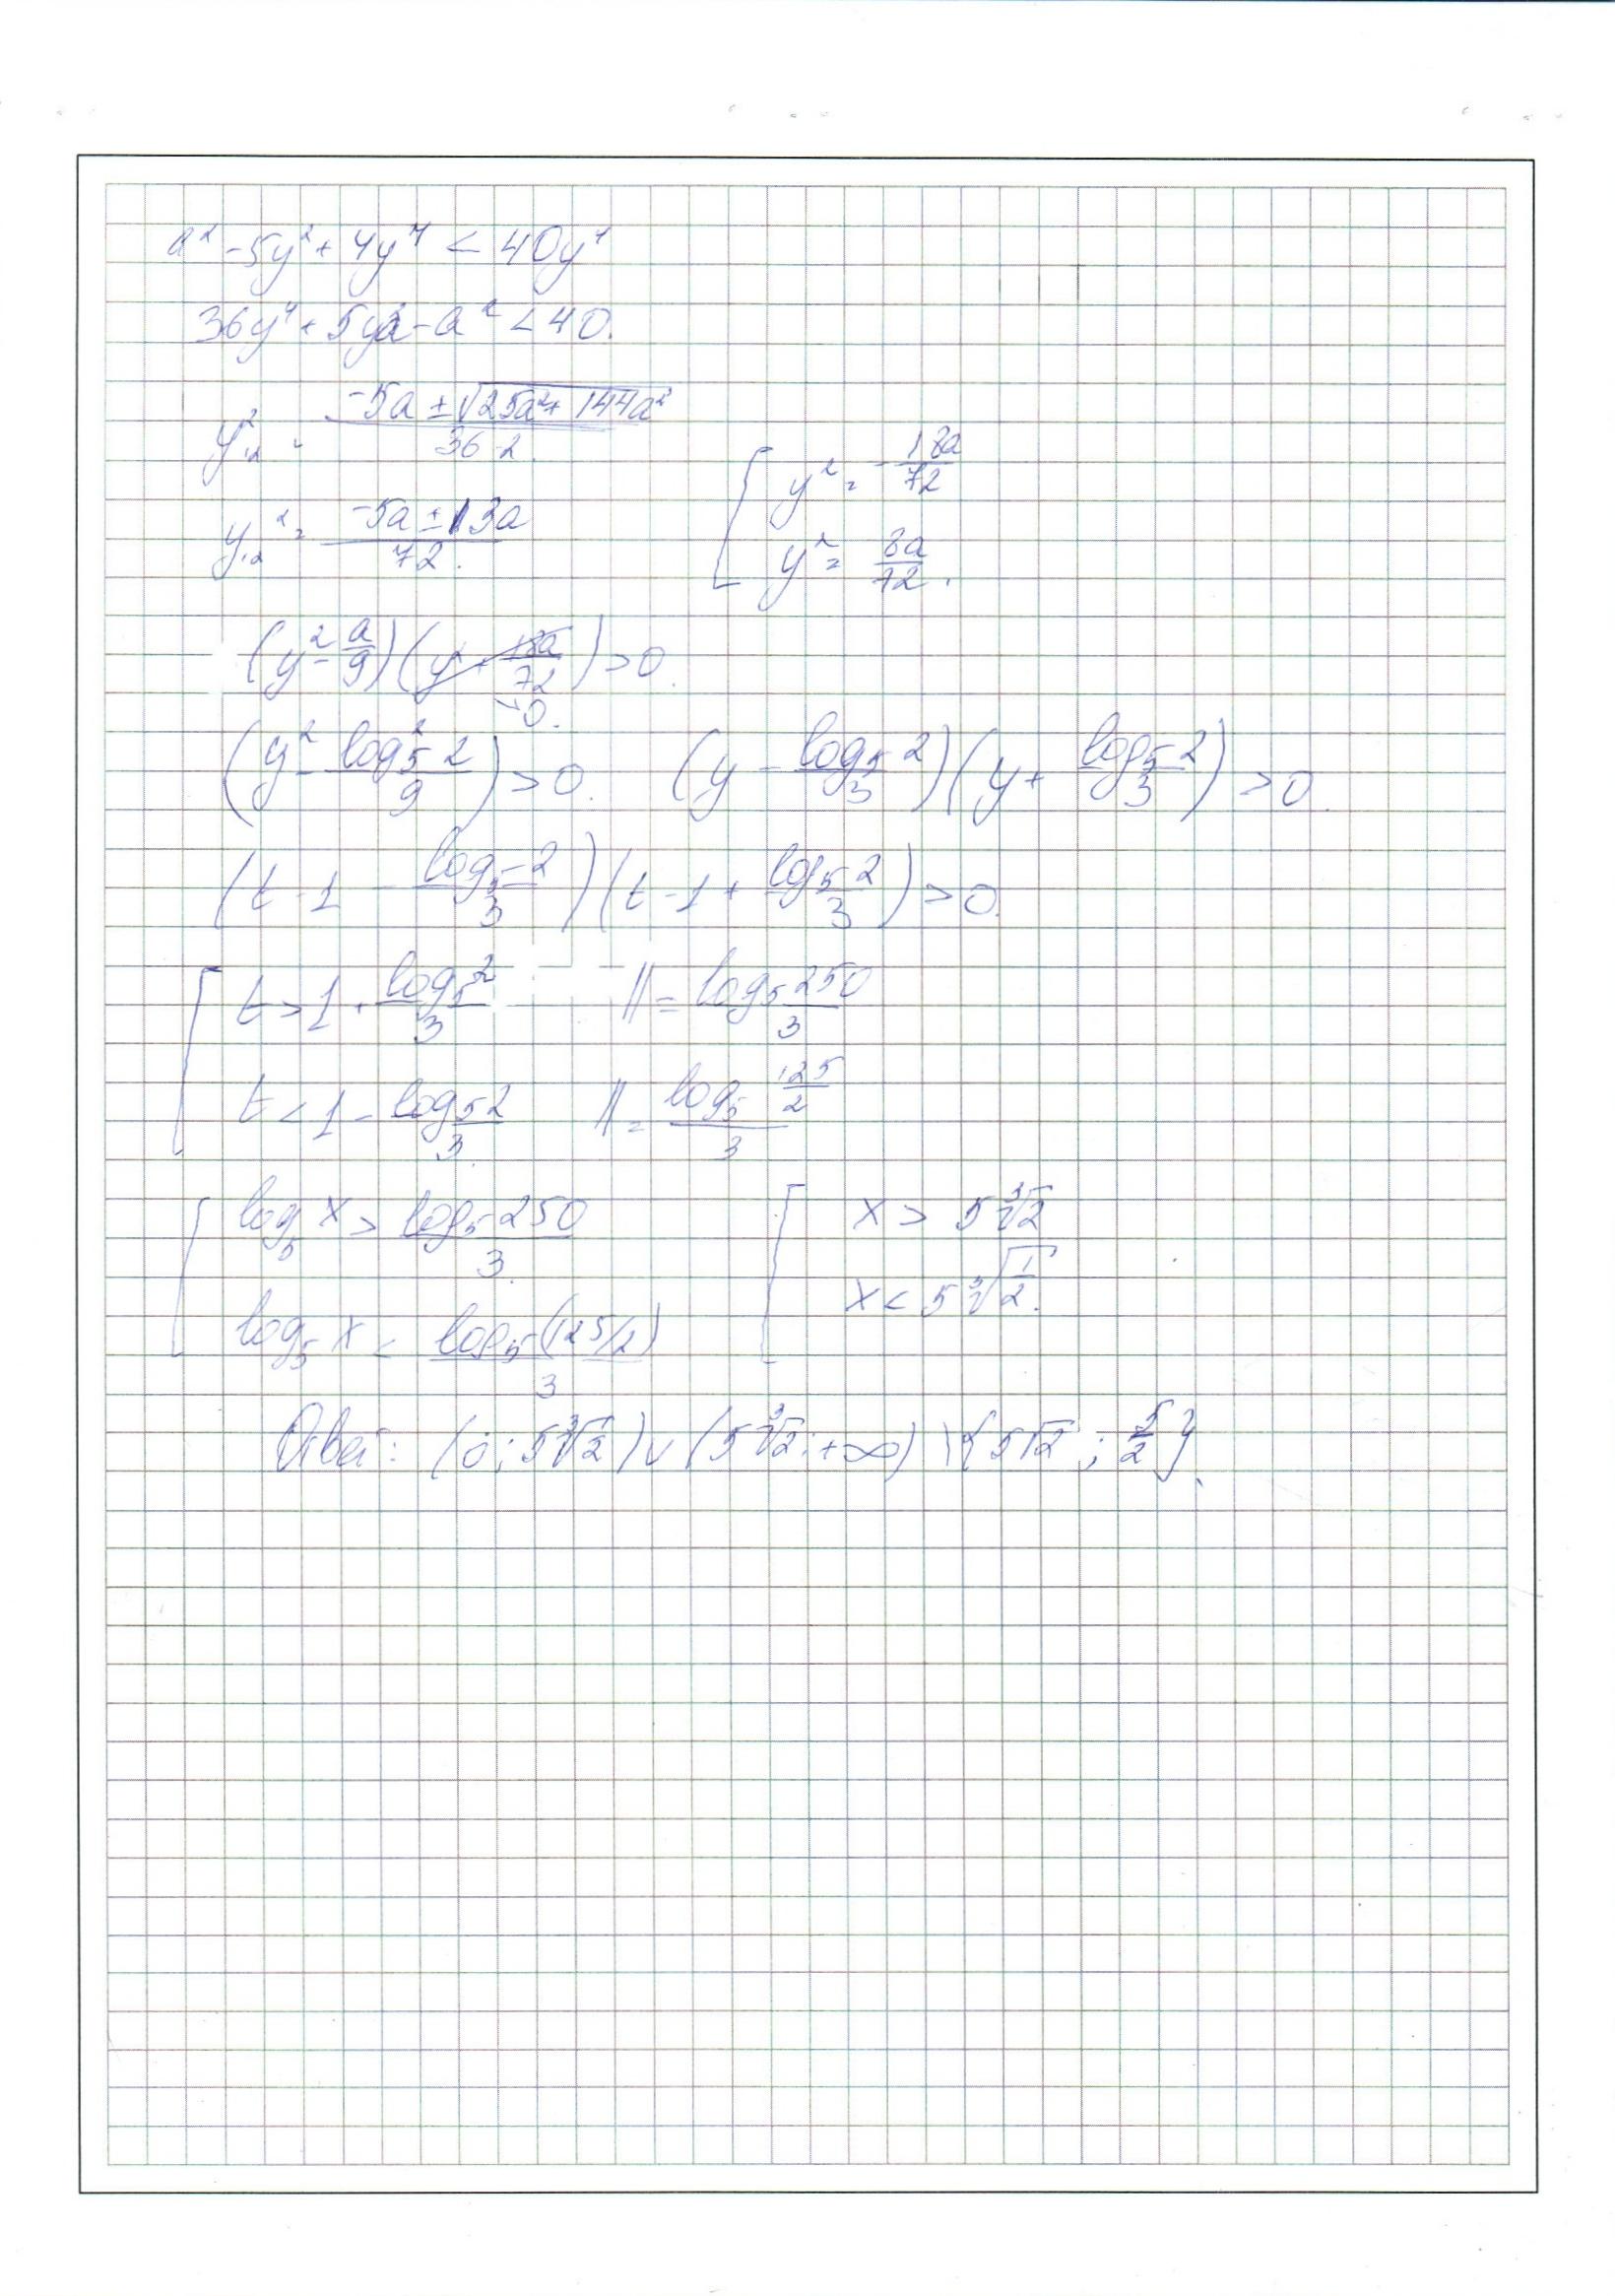 a² - 5y² + 4y⁴ < 40y⁴
36y⁴ + 5y²a - a² < 40.
y²₁,₂ = (-5a ± √(25a² + 144a²)) / (36·2)
y₁,₂² = (-5a ± 13a) / 72.
[ y² = -18a/72
y² = 8a/72.
(y² - a/9)(y² + 18a/72) > 0.
>0.
(y² - log₅²2 / 9) > 0. (y - log₅2 / 3)(y + log₅2 / 3) > 0.
(t - 1 - log₅2 / 3)(t - 1 + log₅2 / 3) > 0.
[ t > 1 + log₅2 / 3 // = log₅250 / 3
t < 1 - log₅2 / 3. // = log₅(125/2) / 3
[ log₅x > log₅250 / 3. [ x > 5∛2
log₅x < log₅(125/2) / 3 x < 5∛(1/2).
Ответ: (0; 5∛(1/2)) ∪ (5∛2; +∞) \ {5√2; 5/2}.